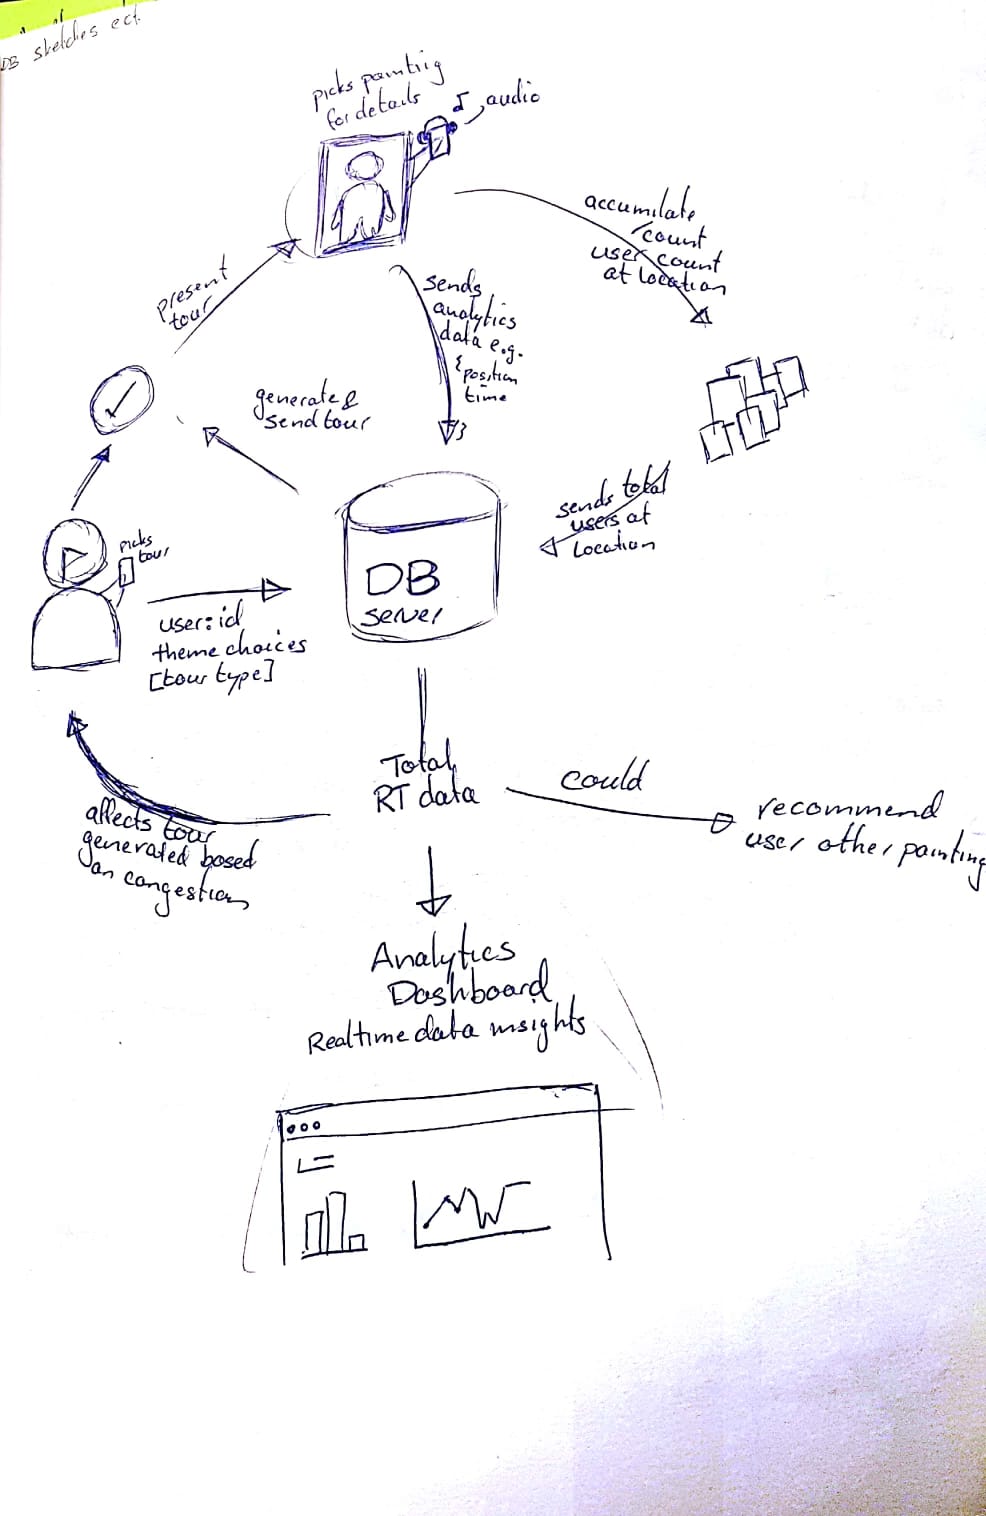 DB sketches ect.
picks painting
for details
audio
accumilate
count
user count
at location
present
tour
sends
analytics
data e.g.
{position
time
}
generate &
send tour
picks
tour
sends total
users at
location
DB
server
user:id
theme choices
[tour type]
Total
RT data
could
recommend
user other painting
affects tour
generated based
on congestion
Analytics
Dashboard
Realtime data insights